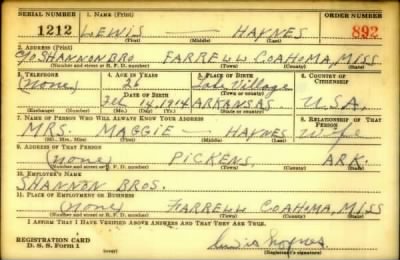 SERIAL NUMBER 1. NAME (Print) ORDER NUMBER
1212 LEWIS — HAYNES 892
(First) (Middle) (Last)
2. ADDRESS (Print)
C/O SHANNON BRO. FARRELL COAHOMA, MISS
(Number and street or R. F. D. number) (Town) (County) (State)
3. TELEPHONE 4. AGE IN YEARS 5. PLACE OF BIRTH 6. COUNTRY OF CITIZENSHIP
(None) 26 Lake Village
DATE OF BIRTH (Town or county)
14, 1914 ARKANSAS U.S.A.
(Exchange) (Number) (Mo.) (Day) (Yr.) (State or country)
7. NAME OF PERSON WHO WILL ALWAYS KNOW YOUR ADDRESS 8. RELATIONSHIP OF THAT PERSON
MRS. MAGGIE — HAYNES Wife
(Mr., Mrs., Miss) (First) (Middle) (Last)
9. ADDRESS OF THAT PERSON
(None) PICKENS, ARK.
(Number and street or R. F. D. number) (Town) (County) (State)
10. EMPLOYER'S NAME
SHANNON BROS.
11. PLACE OF EMPLOYMENT OR BUSINESS
(None) FARRELL COAHOMA, MISS
(Number and street or R. F. D. number) (Town) (County) (State)
I AFFIRM THAT I HAVE VERIFIED ABOVE ANSWERS AND THAT THEY ARE TRUE.
REGISTRATION CARD
D. S. S. Form 1 (over) (Registrant's signature)